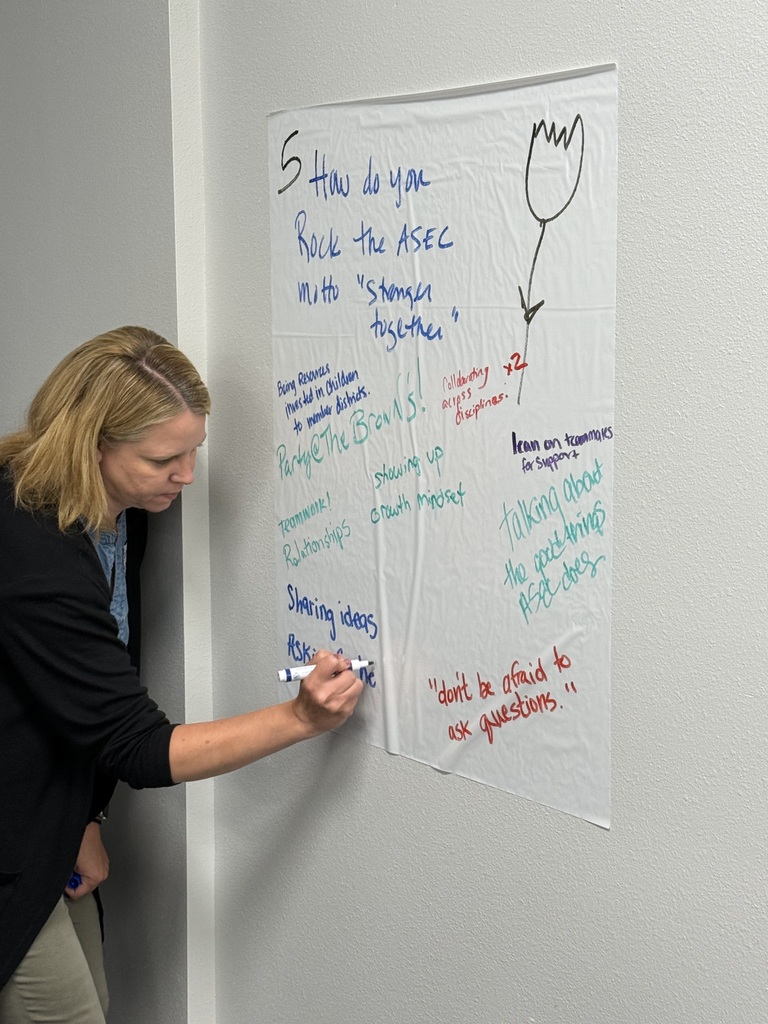 5
How do you
Rock the ASEC
motto "stronger
together"
Being Resources
invested in Children
to member districts.
Collaborating x2
across
disciplines.
Party@The Brown's!
lean on teammates
for support
showing up
Growth mindset
Teamwork!
Relationships
talking about
the great things
ASEC does
Sharing ideas
"don't be afraid to
ask questions."